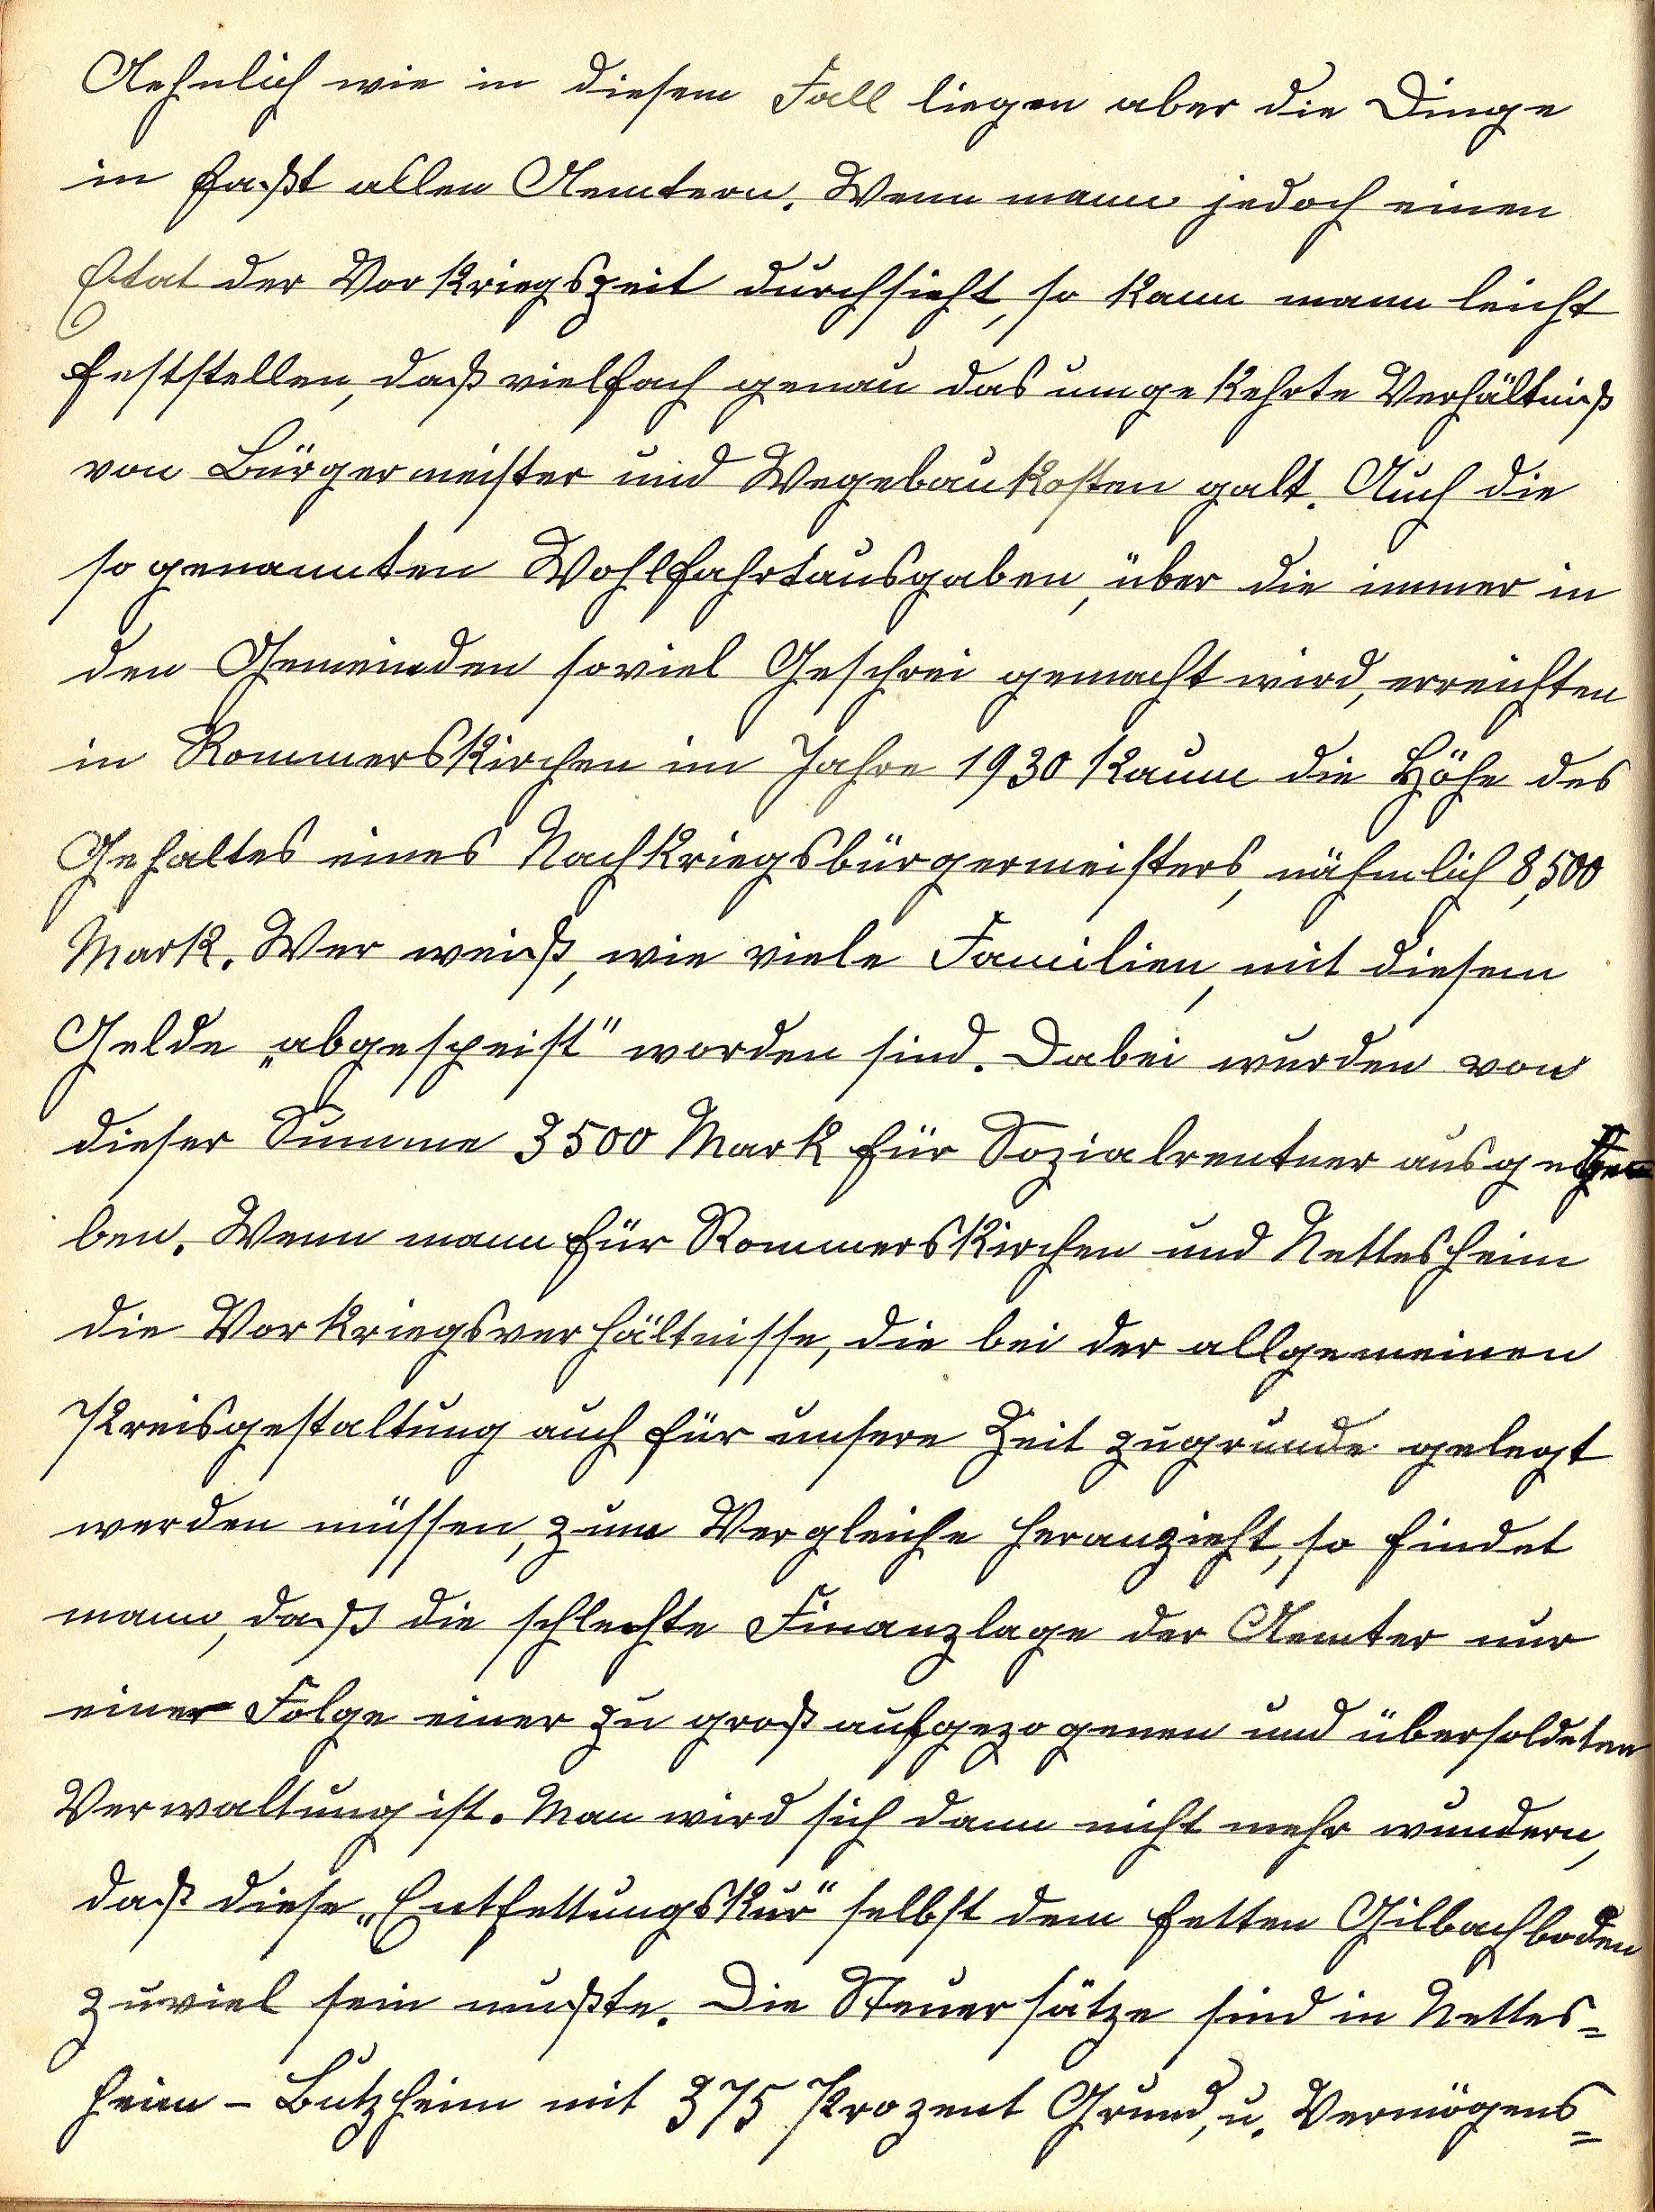 Aehnlich wie in diesem Fall liegen aber die Dinge
in faßt allen Aemtern. Wenn mann jedoch einen
Etat der Vorkriegszeit durchsieht, so kann mann leicht
feststellen, daß vielfach genau das umgekehrte Verhältniß
von Bürgermeister und Wegebaukosten galt. Auch die
sogenannten Wohlfahrtausgaben, über die immer in
den Gemeinden soviel Geschrei gemacht wird, erreichten
in Rommerskirchen im Jahre 1930 kaum die Höhe des
Gehaltes eines Nachkriegsbürgermeisters, nähmlich 8,500
Mark. Wer weiß, wie viele Familien, mit diesem
Gelde „abgespeist" worden sind. Dabei wurden von
dieser Summe 3500 Mark für Sozialrentner ausge
ben. Wenn mann für Rommerskirchen und Nettesheim
die Vorkriegsverhältnisse, die bei der allgemeinen
Kreisgestaltung auch für unsere Zeit zugrunde gelegt
werden müssen, zum Vergleiche heranzieht, so findet
mann, daß die schlechte Finanzlage der Aemter nur
einer Folge einer zu groß aufgezogenen und übersoldeten
Verwaltung ist. Man wird sich dann nicht mehr wundern,
daß diese „Entfettungskur" selbst dem fetten Gilbachboden
zuviel sein mußte. Die Steuersätze sind in Nettes=
heim - Butzheim mit 375 Prozent Grund, u. Vermögens=